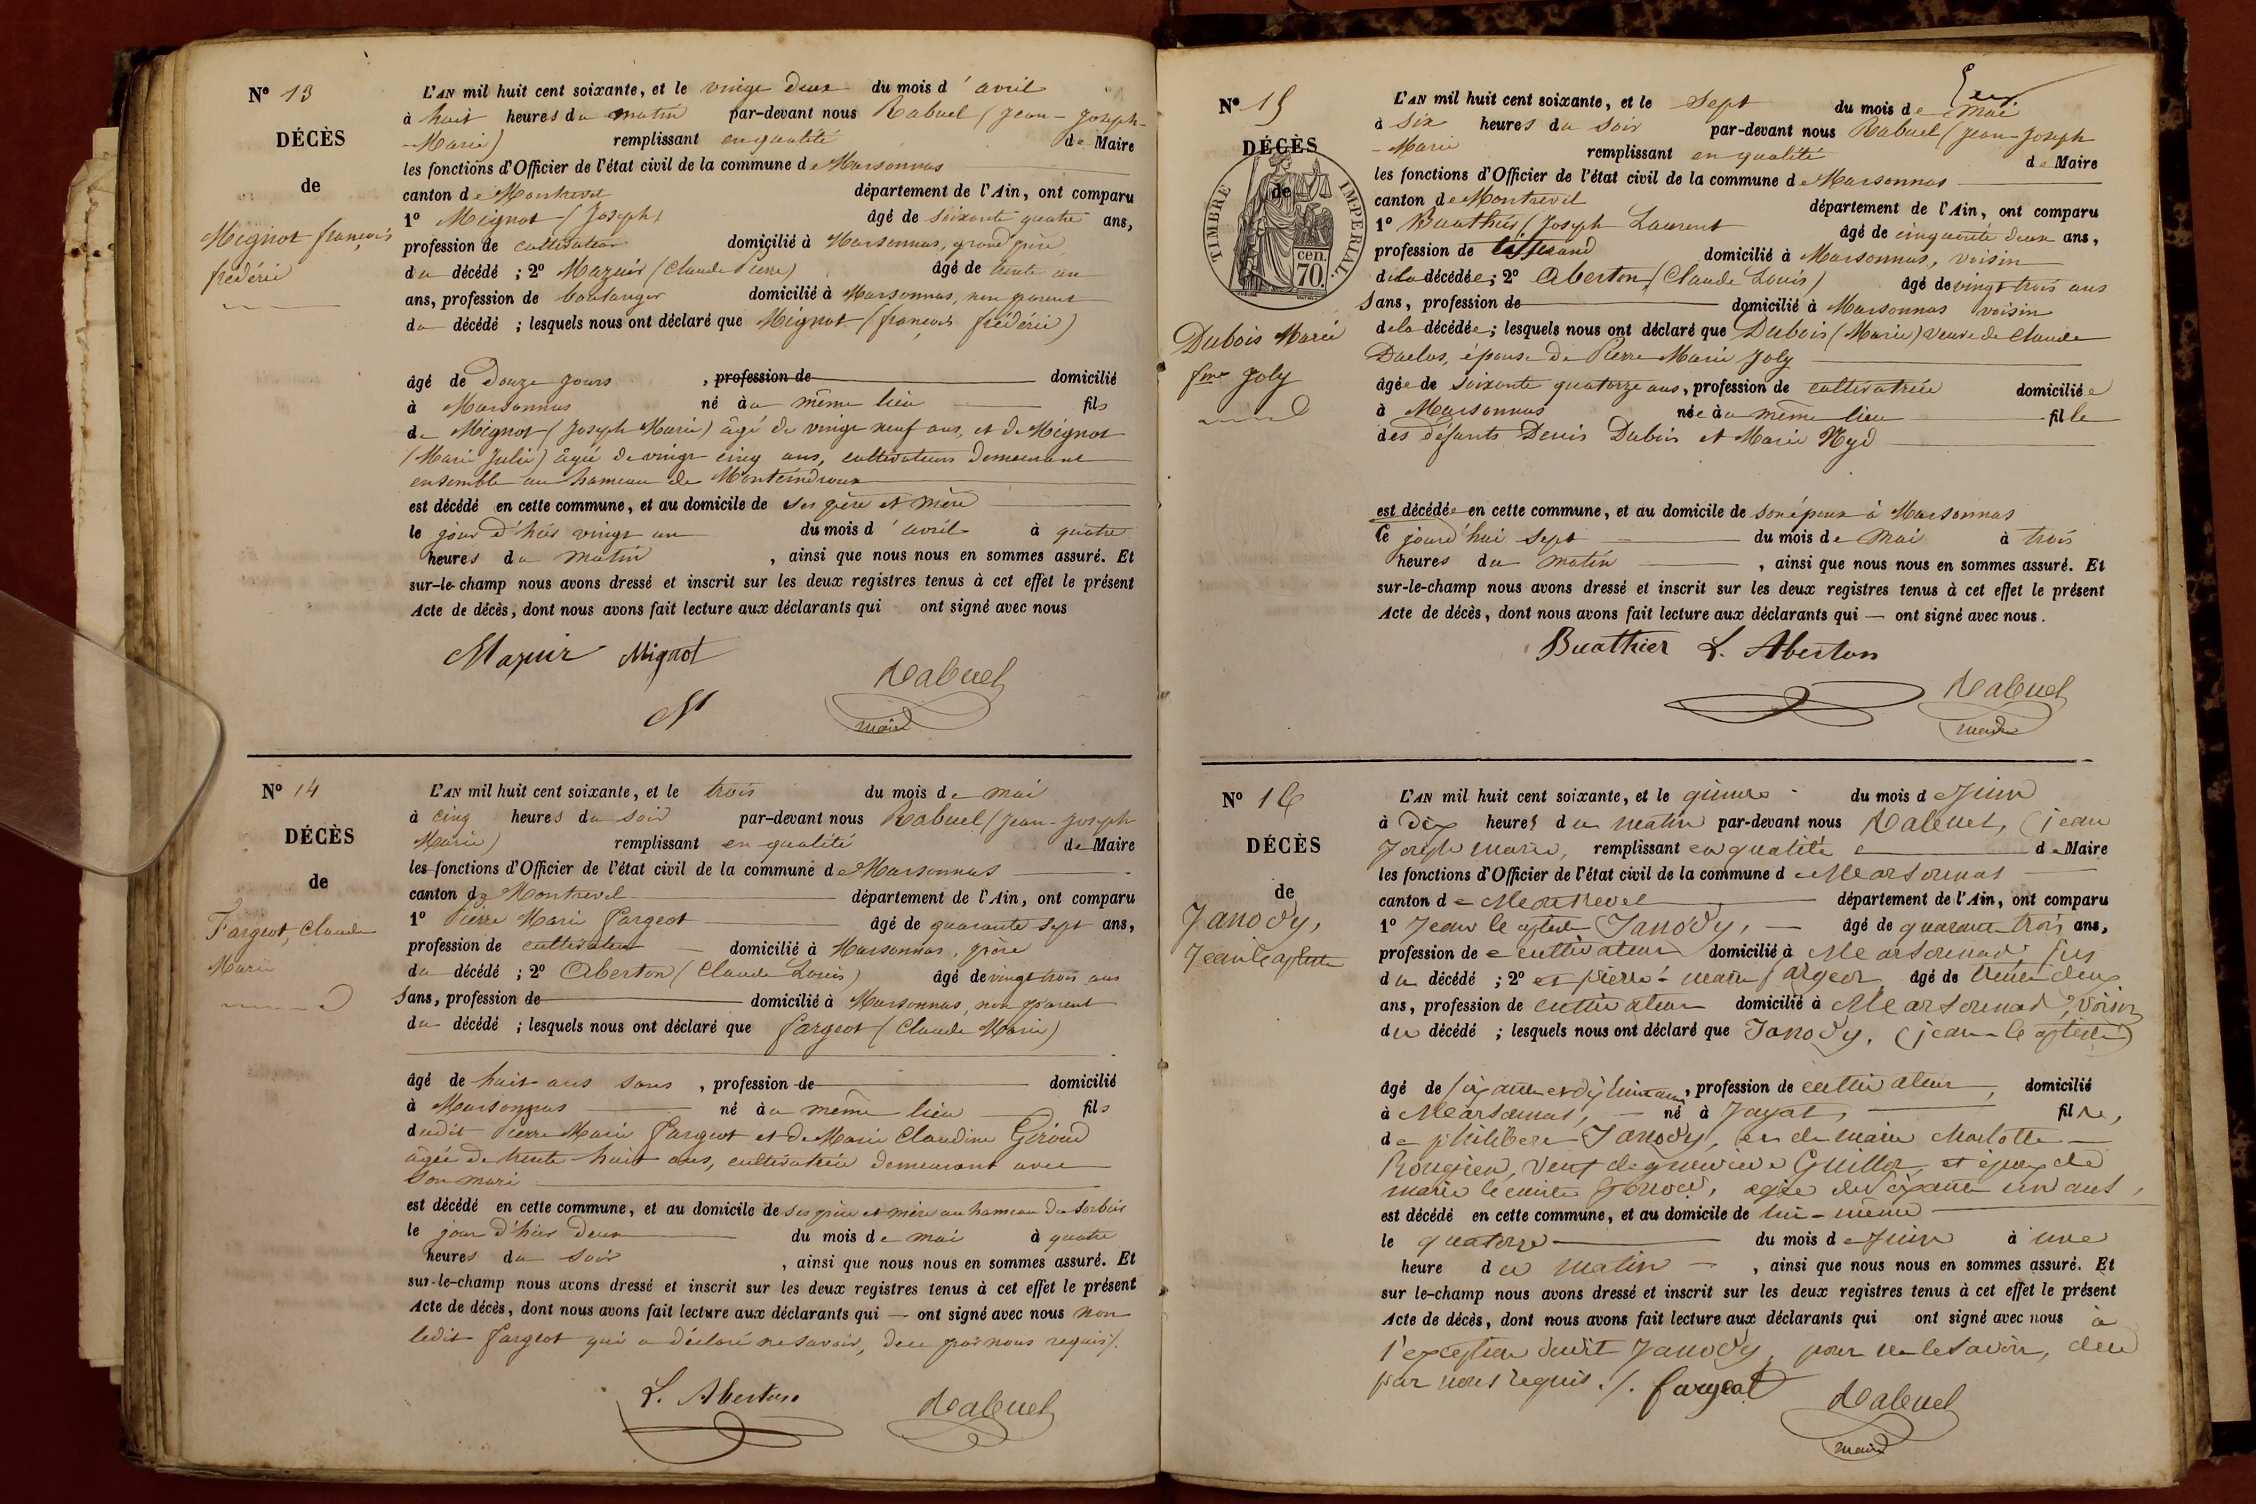 Nº 13
DÉCÈS
de
Mignot françois
frédéric
L'AN mil huit cent soixante, et le vingt deux du mois d'avril
à huit heures du matin par-devant nous Rabuel (Jean-Joseph-
-Marie) remplissant en qualité de Maire
les fonctions d'Officier de l'état civil de la commune de Marsonnas
canton de Montrevel département de l'Ain, ont comparu
1º Mignot (Joseph) âgé de soixante quatre ans,
profession de cultivateur domicilié à Marsonnas, grand père
du décédé ; 2º Mazuir (Claude Pierre) âgé de trente un
ans, profession de boulanger domicilié à Marsonnas, non parent
du décédé ; lesquels nous ont déclaré que Mignot (françois frédéric)
âgé de Douze jours , profession de domicilié
à Marsonnas né au même lieu fils
de Mignot (Joseph Marie) âgé de vingt neuf ans, et de Mignot
(Marie Julie) âgée de vingt cinq ans, cultivateurs demeurant
ensemble au hameau de
est décédé en cette commune, et au domicile de ses père et mère
le jour d'hier vingt un du mois d'avril à quatre
heures du matin , ainsi que nous nous en sommes assuré. Et
sur-le-champ nous avons dressé et inscrit sur les deux registres tenus à cet effet le présent
Acte de décès, dont nous avons fait lecture aux déclarants qui ont signé avec nous
Mazuir Mignot
Rabuel
maire
Nº 14
DÉCÈS
de
Fargeot, Claude
Marie
L'AN mil huit cent soixante, et le trois du mois de mai
à cinq heures du soir par-devant nous Rabuel (Jean-Joseph
Marie) remplissant en qualité de Maire
les fonctions d'Officier de l'état civil de la commune de Marsonnas
canton de Montrevel département de l'Ain, ont comparu
1º Pierre Marie Fargeot âgé de quarante sept ans,
profession de cultivateur domicilié à Marsonnas, père
du décédé ; 2º Aberton (Claude Louis) âgé de vingt trois ans
Sans, profession de domicilié à Marsonnas, non parent
du décédé ; lesquels nous ont déclaré que fargeot (Claude Marie)
âgé de huit ans sans , profession de domicilié
à Marsonnas né au même lieu fils
dudit Pierre Marie fargeot et de Marie Claudine Giroud
âgée de trente huit ans, cultivatrice demeurant avec
son mari
est décédé en cette commune, et au domicile de ses père et mère au hameau du Sorbier
le jour d'hier deux du mois de mai à quatre
heures du soir , ainsi que nous nous en sommes assuré. Et
sur-le-champ nous avons dressé et inscrit sur les deux registres tenus à cet effet le présent
Acte de décès, dont nous avons fait lecture aux déclarants qui — ont signé avec nous non
ledit fargeot qui a déclaré ne savoir, de ce par nous requis/.
L. Aberton Rabuel
Nº 15
DÉCÈS
de
TIMBRE IMPERIAL
cen.
70.
Dubois Marie
fme Joly
L'AN mil huit cent soixante, et le sept du mois de mai
à six heures du soir par-devant nous Rabuel (Jean-Joseph
-Marie remplissant en qualité de Maire
les fonctions d'Officier de l'état civil de la commune de Marsonnas
canton de Montrevel département de l'Ain, ont comparu
1º Buathier (Joseph Laurent âgé de cinquante deux ans,
profession de domicilié à Marsonnas, voisin
de la décédée ; 2º Aberton (Claude Louis) âgé de vingt trois ans
Sans, profession de domicilié à Marsonnas voisin
de la décédée ; lesquels nous ont déclaré que Dubois (Marie) veuve de Claude
Duclos, épouse de Pierre Marie Joly
âgée de soixante quatorze ans, profession de cultivatrice domiciliée
à Marsonnas née au même lieu fille
des défunts Denis Dubois et Marie Nyd
est décédée en cette commune, et au domicile de son époux à Marsonnas
le jourd'hui sept du mois de mai à trois
heures du matin , ainsi que nous nous en sommes assuré. Et
sur-le-champ nous avons dressé et inscrit sur les deux registres tenus à cet effet le présent
Acte de décès, dont nous avons fait lecture aux déclarants qui — ont signé avec nous.
Buathier L. Aberton
Rabuel
maire
Nº 16
DÉCÈS
de
Janody,
Jean Baptiste
L'AN mil huit cent soixante, et le quinze du mois de Juin
à Dix heures du matin par-devant nous Rabuel, (jean
Joseph marie, remplissant en qualité de Maire
les fonctions d'Officier de l'état civil de la commune de Marsonnas
canton de Montrevel département de l'Ain, ont comparu
1º Jean Baptiste Janody, âgé de quarante trois ans,
profession de cultivateur domicilié à Marsonnas, fils
du décédé ; 2º et pierre-marie fargeot âgé de trente deux
ans, profession de cultivateur domicilié à Marsonnas, voisin
du décédé ; lesquels nous ont déclaré que Janody, (jean-Baptiste)
âgé de soixante et dix huit ans, profession de cultivateur, domicilié
à Marsonnas, né à Jayat, fils,
de philibert Janody, et de marie charlotte
Rougien, veuf de Guillot, et époux de
marie âgée de soixante un ans,
est décédé en cette commune, et au domicile de lui-même
le quatorze du mois de Juin à une
heure du matin , ainsi que nous nous en sommes assuré. Et
sur le-champ nous avons dressé et inscrit sur les deux registres tenus à cet effet le présent
Acte de décès, dont nous avons fait lecture aux déclarants qui ont signé avec nous à
l'exception dudit Janody, pour ne le savoir, de ce
par nous requis ./. fargeot Rabuel
maire